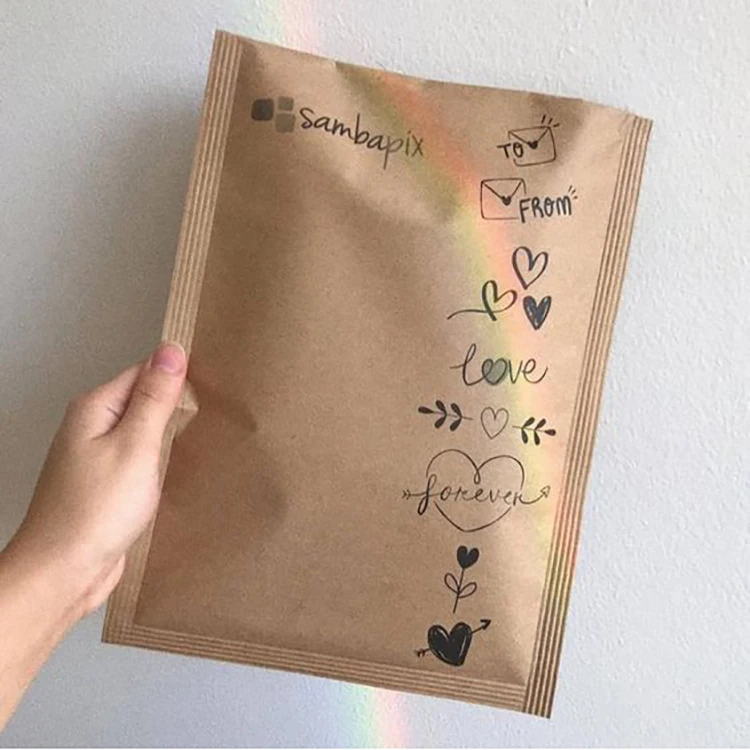 sambapix
TO
FROM
love
forever